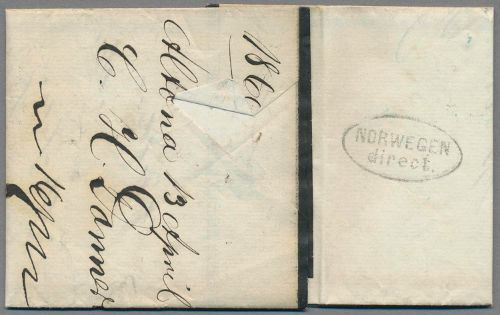 1860
Altona 13 April
C. H. Donner
NORWEGEN
direct.